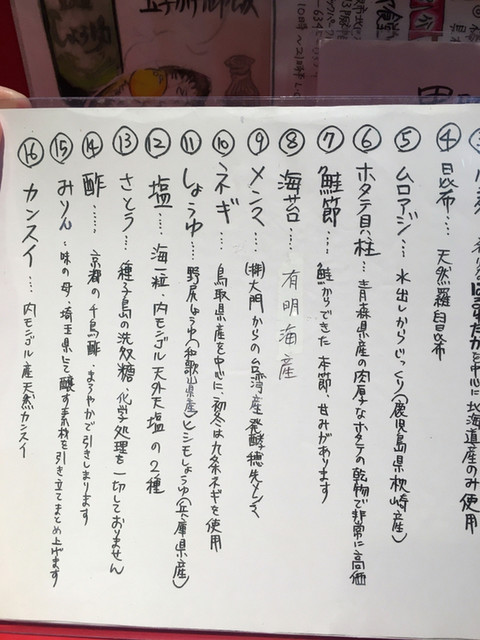 を中心に北海道産のみ使用
④ 昆布… 天然羅臼昆布
⑤ ムロアジ… 水出しからじっくり(鹿児島県枕崎産)
⑥ ホタテ貝柱… 青森県産の肉厚なホタテの乾物で非常に高価
⑦ 鮭節… 鮭からできた本節、甘みがあります
⑧ 海苔… 有明海産
⑨ メンマ… (株)大門からの台湾産発酵穂先メンマ
⑩ ネギ… 鳥取県産を中心に初冬は九条ネギを使用
⑪ しょうゆ… 野尻しょうゆ(和歌山県産)ヒシモしょうゆ(兵庫県産)
⑫ 塩… 海一粒、内モンゴル天外天塩の2種
⑬ さとう… 種子島の洗双糖、化学処理を一切しておりません
⑭ 酢… 京都の千鳥酢、まろやかで引きしまります
⑮ みりん… 味の母、埼玉県にて醸す素材を引き立てまとめ上げます
⑯ カンスイ… 内モンゴル産天然カンスイ
10時〜21時